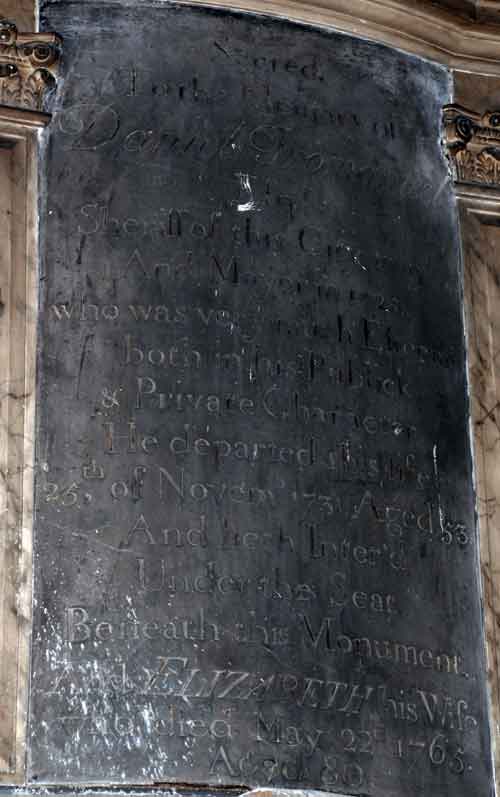 Sacred,
To the Memory of
Daniel
Esqr
Sheriff of this City
And Mayor in
who was very much
both in his Publick
& Private Character
He departed this life
25,th of Novemr. Aged 53
And he is Inter'd
Under the Seat
Beneath this Monument.
And ELIZABETH his Wife
who died May 22d. 1765.
Aged 80